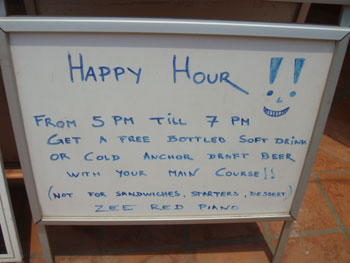 HAPPY HOUR !!
FROM 5 PM TILL 7 PM
GET A FREE BOTTLED SOFT DRINK
OR COLD ANCHOR DRAFT BEER
WITH YOUR MAIN COURSE!!
(NOT FOR SANDWICHES, STARTERS, DESSERT)
ZEE RED PIANO